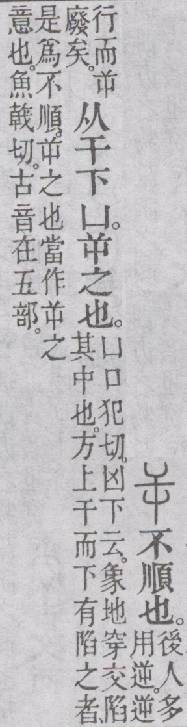 屰不順也。後人多
用逆。逆
行而屰
廢矣。
从干下凵。屰之也。
凵口犯切。凶下云。象地穿交陷
其中也。方上干而下有陷之者
是爲不順。屰之也當作屰之
意也。魚戟切。古音在五部。